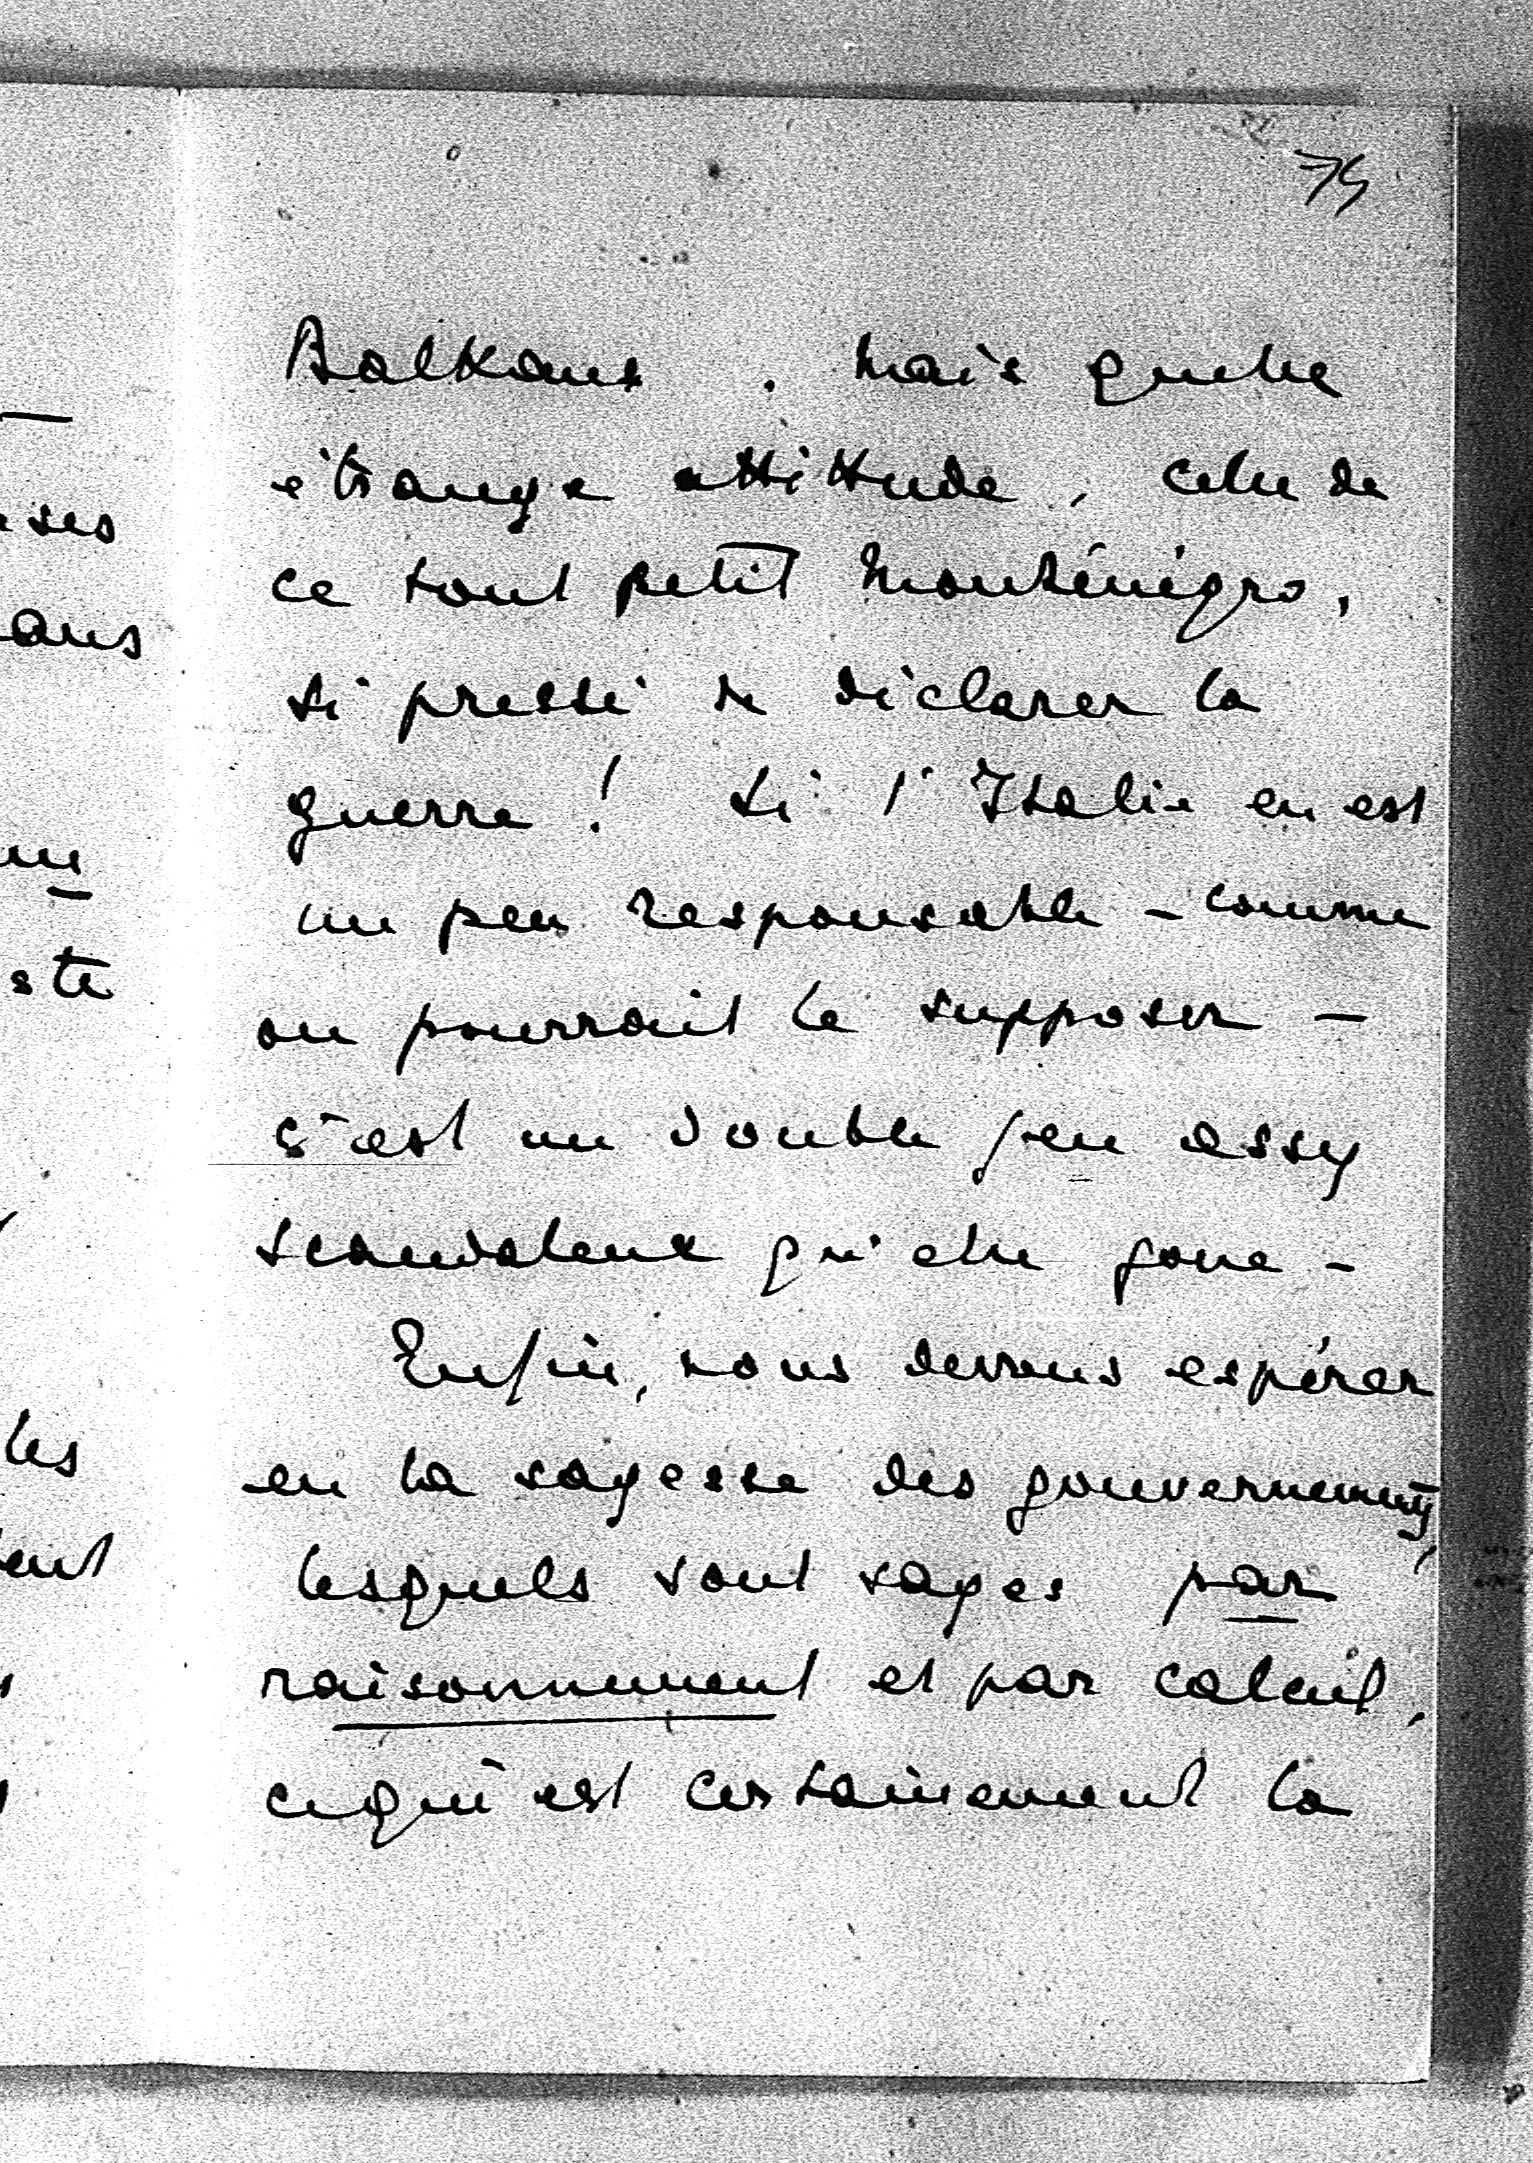 75
Balkans. Mais quelle
étrange attitude, celle de
ce tout petit Monténégro,
si pressé de déclarer la
guerre ! Si l'Italie en est
un peu responsable - comme
on pourrait le supposer -
c'est un double jeu assez
scandaleux qu'elle joue -
Enfin, nous devons espérer
en la sagesse des gouvernements,
lesquels sont sages par
raisonnement et par calcul,
ce qui est certainement la